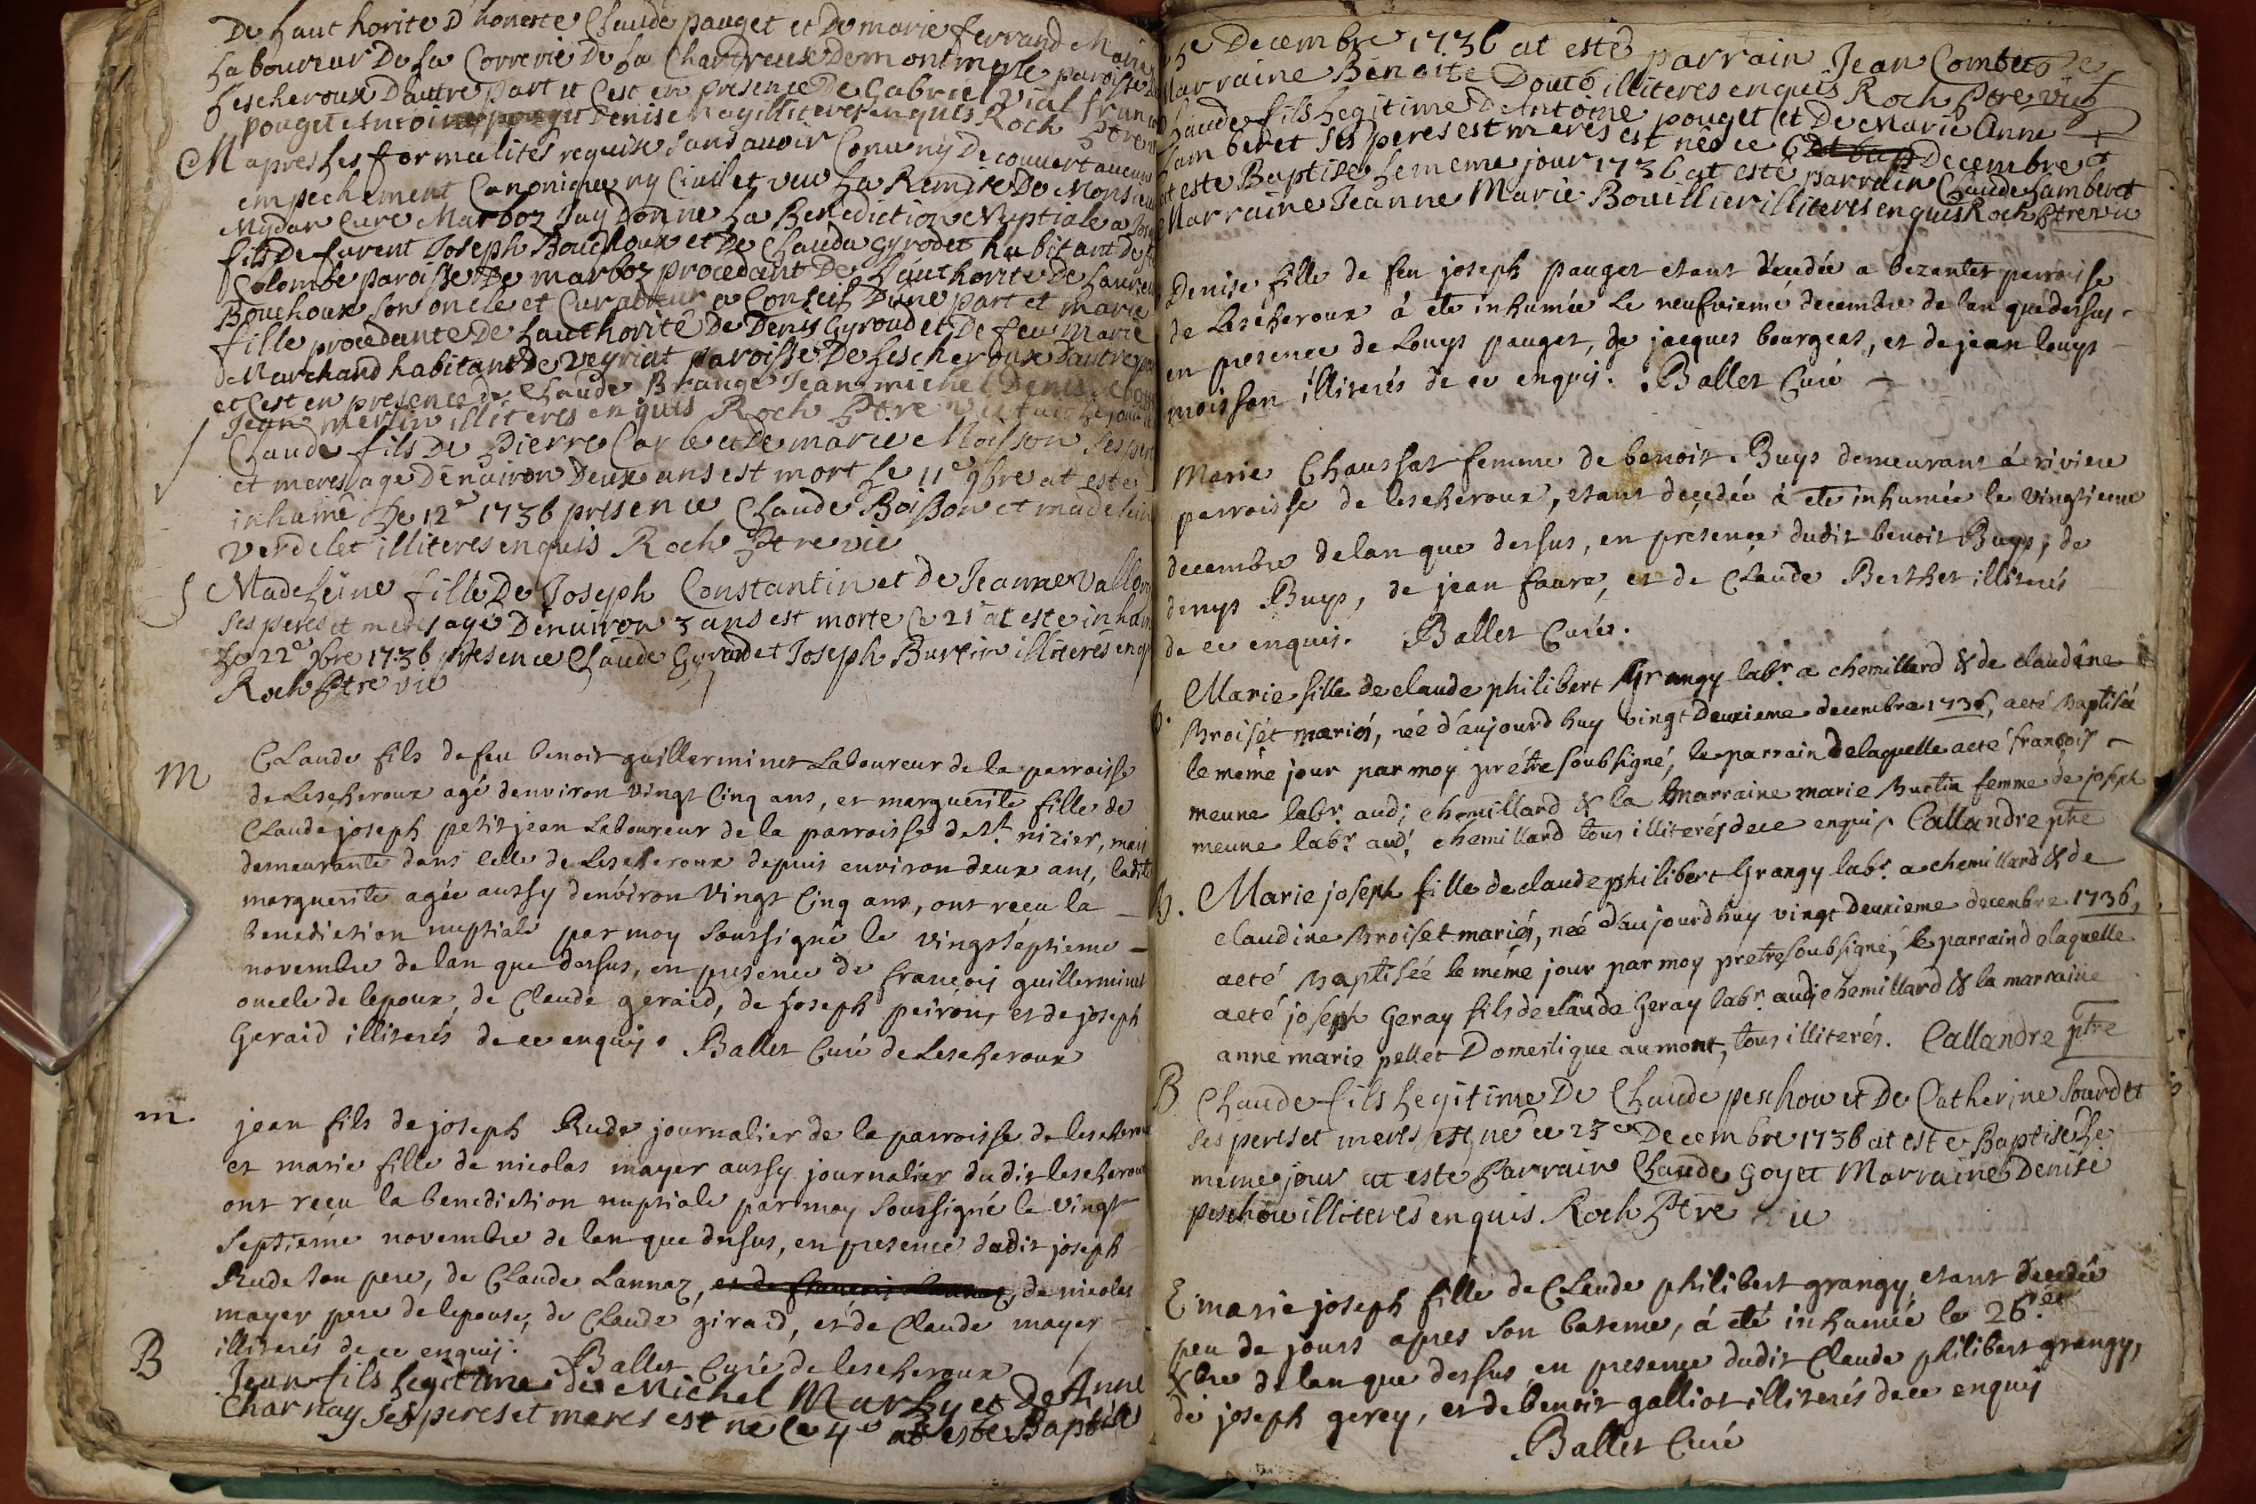 De Lauthorité D'honeste Claude pauget et De marie ferrand Mariés
Laboureur De La Correrie De La Chartreuse De montmerle paroisse de
Lescheroux D'autre part et C'est en presence De Gabriel Vial
pouget Denise illiteres enquis Roch Ptre vic
M apres Les formalités requise sans avoir Conu ny Decouvert aucun
empechement Canonique ny Civil et veu La Remise De Monsieur
Nydar Curé Marboz J'ay Donne La Benediction Nuptiale a
fils De furent Joseph Bouchoux et De Clauda Gyrodet habitant de
Colombe paroisse De marboz procedant De Lauthorité De
Bouchoux son oncle et Curateur a Conseil D'une part et marie
fille procedante De Lauthorité De Denis Gyroud et De feu Marie
de Marchand habitant De Veyriat paroisse De Lescheroux D'autre part
et C'est en presence de Claude Brange Jean michel Denis
Jean merlin illiteres enquis Roch Ptre vic
Claude fils De Pierre Carle et De marie Moisson Ses peres
et meres age D'enuiron Deux ans est mort Le 11e 9bre at esté
inhumé Le 12e 1736 presence Claude Boisson et madeleine
Verdelet illiteres enquis Roch Ptre vic
S Madeleine fille De Joseph Constantin et de Jeanne
Ses peres et meres age D'enuiron 3 ans est morte Ce 21 at este inhumé
Le 22e 9bre 1736 presence Claude Gyroud et Joseph Burtin illiterés enquis
Roch Ptre vic
m Claude fils de feu benoit guillerminet Laboureur de la parroisse
de Lescheroux agé denviron vingt Cinq ans, et marguerite fille de
Claude joseph petitjean Laboureur de la parroisse de St. nizier, mais
demeurante dans celle de Lescheroux depuis environ deux ans, ladite
marguerite agée aussy denviron vingt Cinq ans, ont reçu la
benediction nuptiale par moy soussigné le vingtseptieme
novembre de lan que dessus, en presence de françois guillerminet
oncle de lepoux, de Claude geraid, de joseph peiron, et de joseph
Geraid illiterés de ce enquis. Ballet Curé de Lescheroux
m jean fils de joseph Rude journalier de la parroisse de lescheroux
et marie fille de nicolas mayer aussy journalier dudit lescheroux
ont reçu la benediction nuptiale par moy soussigné le vingt
Septieme novembre de lan que dessus, en presence dudit joseph
Rude son pere, de Claude Lannaz, de nicolas
mayer pere de lepouse, de Claude giraid, et de Claude mayer
illiterés de ce enquis. Ballet Curé de lescheroux
B Jean fils Legitime de Michel Marhy et De Anne
Charnay Ses peres et meres est ne Ce 4e at este Baptise
Decembre 1736 at esté parrain Jean Combet
Marraine Benoite Douté illiteres enquis Roch Ptre vic
Claude fils Legitime D'Antoine pouget et De Marie Anne
Lamberet Ses peres et meres est née ce 6 Decembre
at este Baptise Le meme jour 1736 at esté parrain Claude Lamberet
Marraine Jeanne Marie Bouillier illiteres enquis Roch Ptre vic
Denise fille de feu joseph pauget etant decedée a bezentet parroisse
de Lescheroux à été inhumée Le neufvieme decembre de lan que dessus
en presence de Louys pauget, de jacques bourgeat, et de jean louys
moisson illiterés de ce enquis. Ballet Curé
Marie Chaussat femme de benoit Buys demeurant à riviere
parroisse de lescheroux, etant decedée à été inhumée le vingtieme
decembre de lan que dessus, en presence dudit benoit Buys, de
denys Buys, de jean faure, et de Claude Berthet illiterés
de ce enquis. Ballet Curé.
b. Marie fille de claude philibert Grangy labr. a chemillard & de claudine
Broiset mariés, née d'aujourdhuy vingt Deuxieme decembre 1736, aeté Baptisée
le même jour par moy prêtre soubsigné, le parrain delaquelle aeté françois
meune labr. aud: chemillard & la marraine marie Burtin femme de joseph
meune labr. aud: chemillard tous illiterés de ce enquis. Callandre ptre
b. Marie joseph fille de claude philibert Grangy labr. a chemillard & de
claudine Broiset mariés, née d'aujourdhuy vingt Deuxieme decembre 1736,
aeté Baptisée le même jour par moy pretre soubsigné, le parrain delaquelle
aeté joseph Geray fils de claude Geray labr. aud: chemillard & la marraine
anne marie pellet Domestique au mont, tous illiterés. Callandre ptre
B Claude fils Legitime De Claude peschou et De Catherine Sourdet
Ses peres et meres est ne ce 23e Decembre 1736 at este Baptise Le
meme jour at este Parrain Claude Goyet Marraine Denise
peschou illiteres enquis Roch Ptre vic
E marie joseph fille de Claude philibert grangy, etant decedée
peu de jours apres son bateme, à été inhumée le 26.e
Xbre de lan que dessus en presence dudit Claude philibert grangy,
de joseph gerey, et de benoit galliot illiterés de ce enquis
Ballet Curé